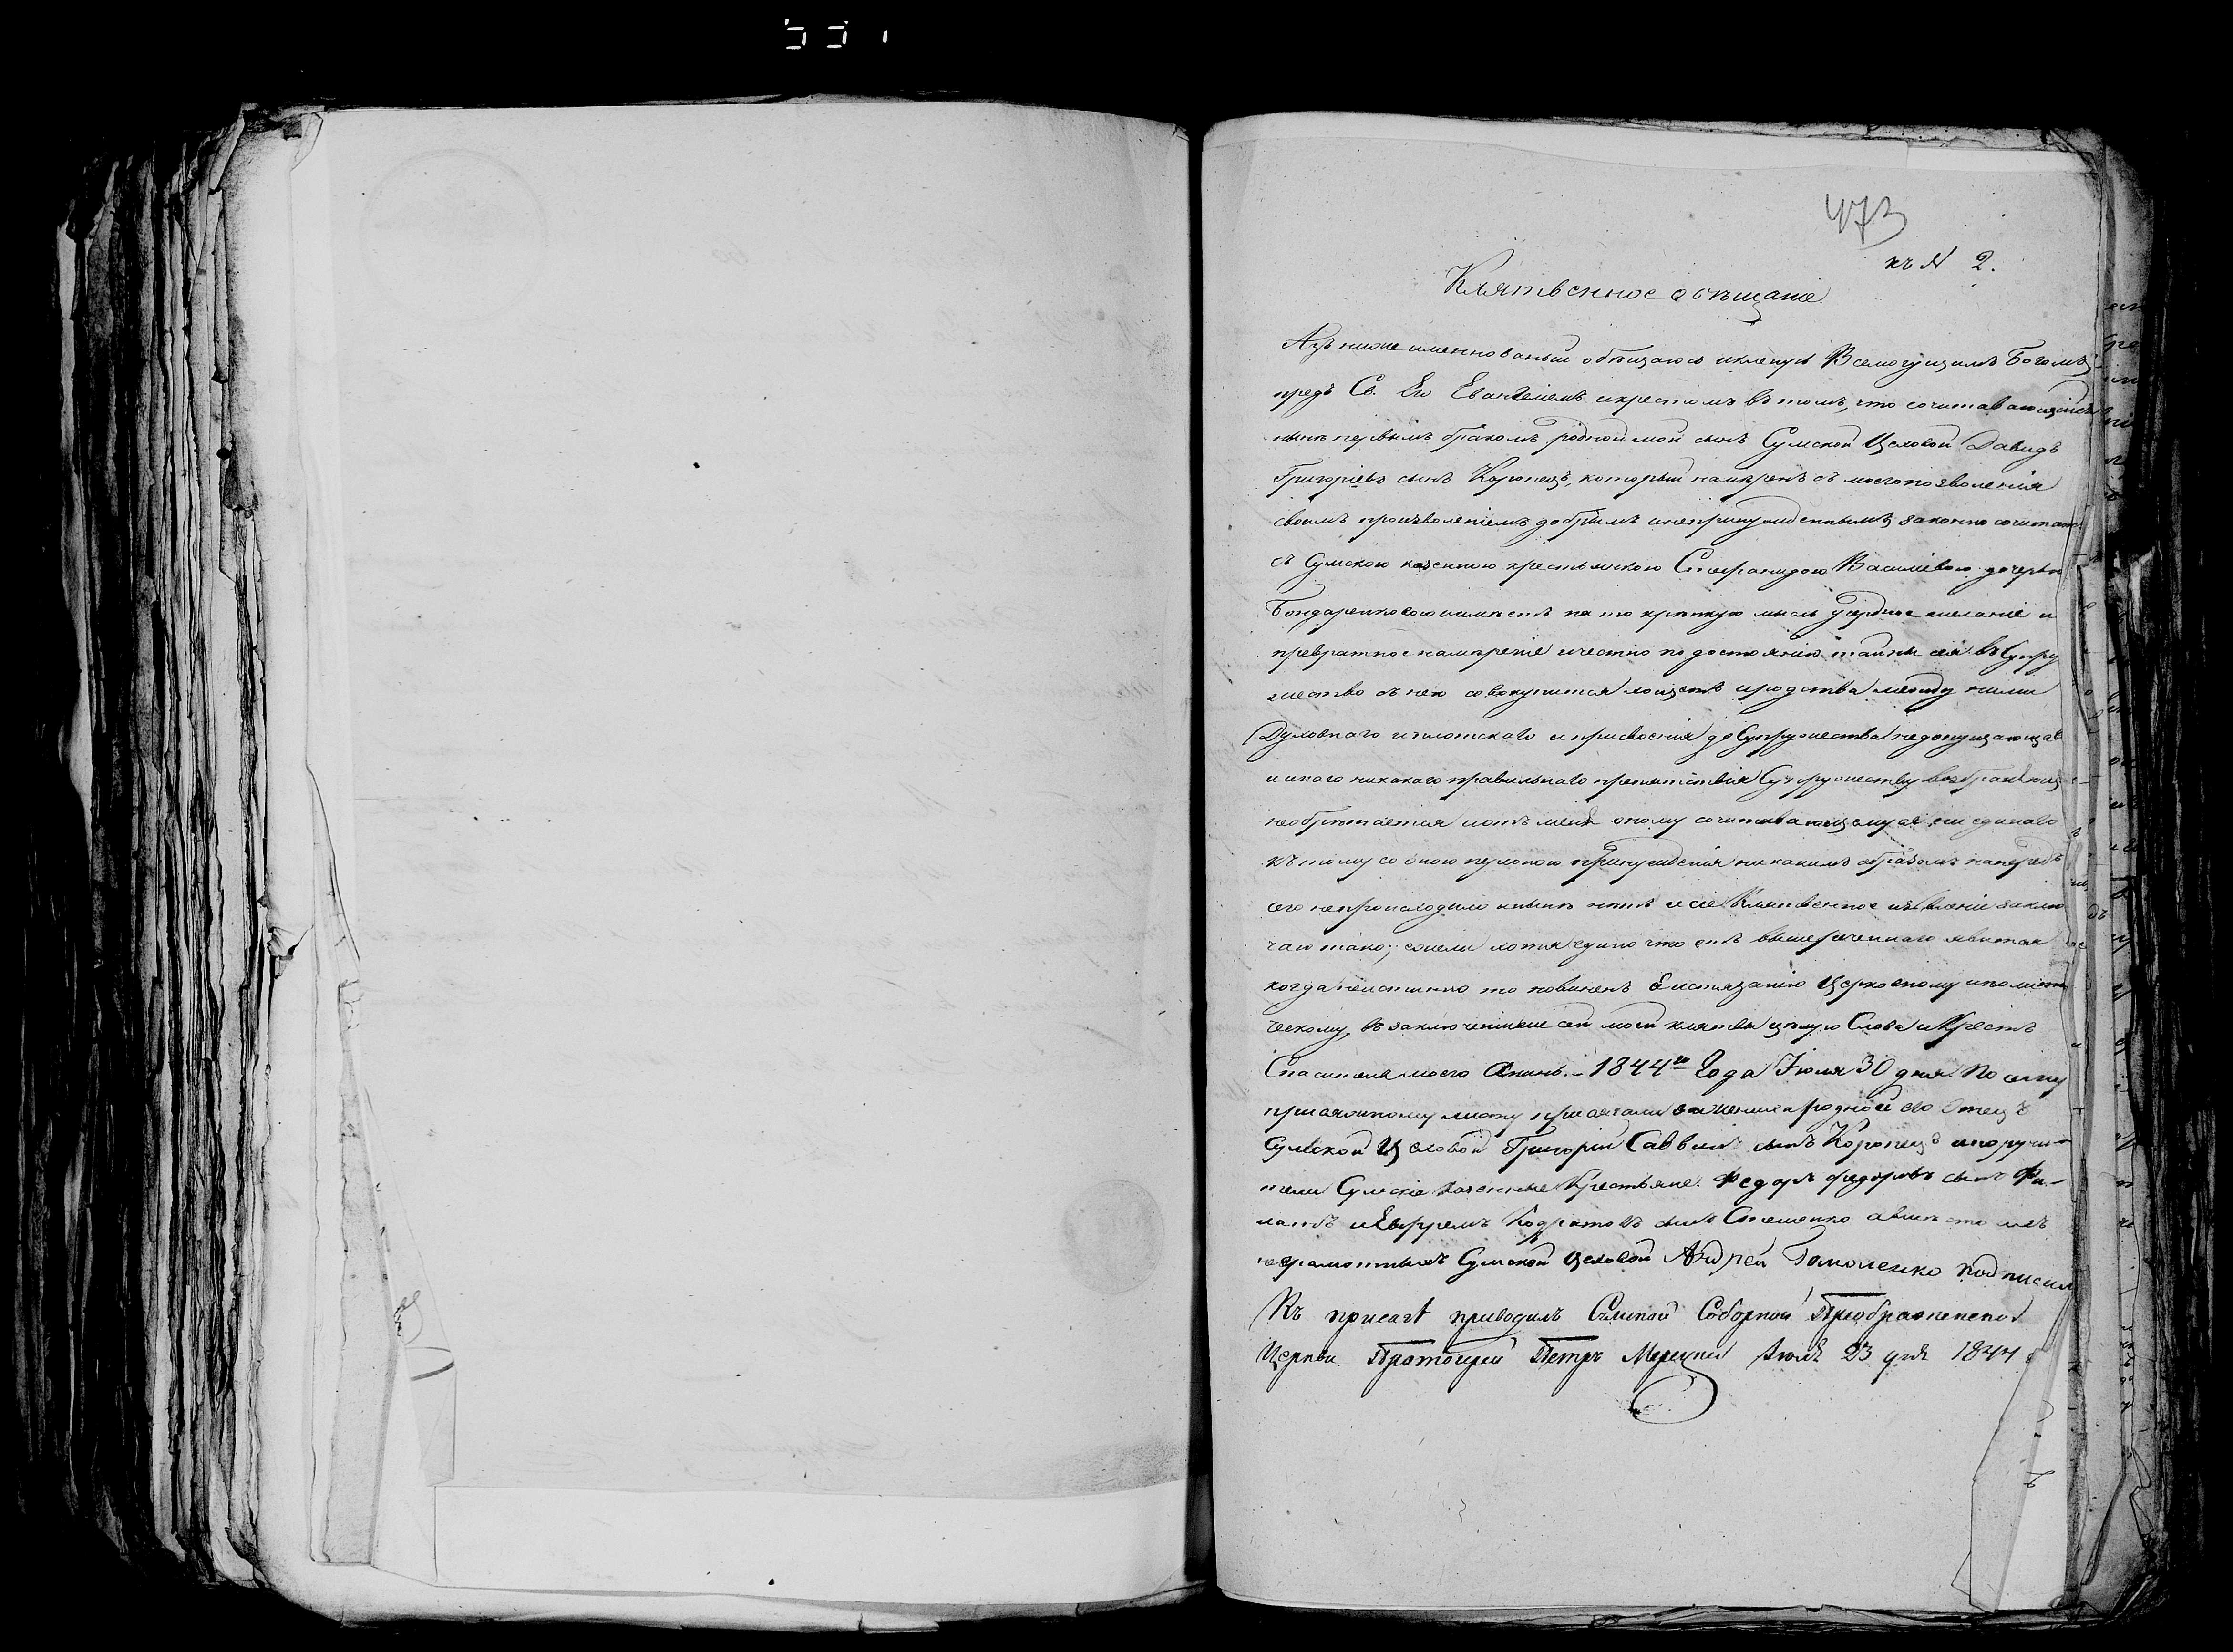 473
къ № 2.
Клятвенное обѣщаніе
Азъ нижеименнованный обѣщаюсь и кленусь Всемогущимъ Богомъ
предъ Св. Его Евангелiемъ и крестомъ въ томъ, что сочитавающійся
нынѣ первымъ бракомъ родной мой сынъ Сумской Цеховой Давидъ
Григоріевъ сынъ Коропецъ, который намѣренъ съ моего позволенія
своимъ произволеніемъ добрымъ и непринужденнымъ законно сочитатся
съ Сумскою казенною крестьянкою Стефанидою Васильевою дочерью
Бондаренковою имѣетъ на то крѣпкую мысль усердное желаніе и
превратное намѣреніе и честно по достоянію тайны сея въ Супру
жество съ нею совокупится хощетъ и родства между ними
Духовнаго и плотскаго и присвоенія до Супружества недопущающаго
и иного никакого правильнаго препятствія Супружеству возбраняющ
необрѣтается и отъ меня оному сочитавающемуся ни единаго
къ тому со оною принужденія никакимъ образомъ напредь
сего непроисходило и нынѣ нѣтъ и сіе Клятвенное изъявленіе заклю
чаю тако; ежели хотя едино что отъ вышереченнаго явится
когда неистинно то повиненъ истязанію Церковному и полити
ческому, въ заключеніе сей моей клятвы цѣлую Слова и Крестъ
Спасителя моего Аминь. - 1844го Года Іюля 30 дня. По сему
присяжному листу присягали женихъ родной его Отецъ
Сумской Цеховой Григорій Саввинъ сынъ Коропецъ и поручи-
тели Сумскіе казенные Крестьяне. Федоръ Федоровъ сынъ Фи-
латъ и Ефремъ Кодратовъ сынъ Стеценко а вмѣсто ихъ
неграмотныхъ Сумской цеховой Андрей Гамоленко подписал
Къ присягѣ приводилъ Сумской Соборной Преображенской
Церкви Протоіерей Петръ Іюля 23 дня 1844